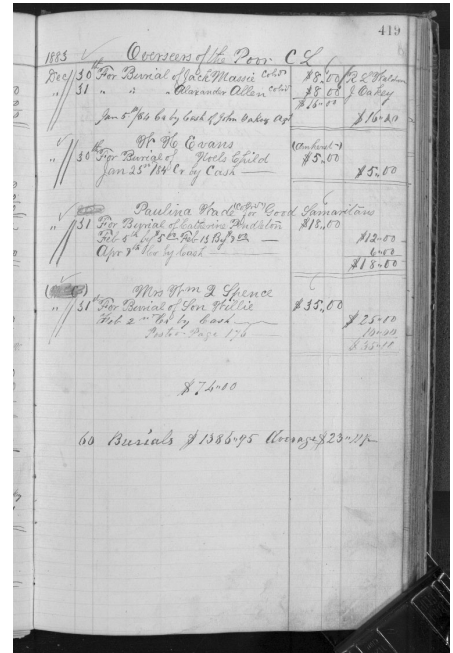 419
1883 Overseers of the Poor C L
Dec 30th For Burial of Jack Massie Col'd $8.00
" 31 " " " Alexander Allen Col'd $8.00 J Oakey
$16.00
Jan 5th/84 by Cash of John Oakey $16.00
W. H. Evans (Amherst)
" 30th For Burial of Child $5.00
Jan 25th 184 Cr by Cash $5.00
Paulina Wade (Col'd) for Good Samaritans
" 31 For Burial of Catherine Pendleton $18.00
Feb 5th by 5.00 Feb 15 By 7.00 $12.00
Apr 7th Cr by Cash 6.00
$18.00
Mrs Wm D Spence
" 31st For Burial of Son Willie $35.00
Feb 2nd Cr by Cash $25.00
Posted Page 176 10.00
$35.00
$74.00
60 Burials $1386.95 Average $23